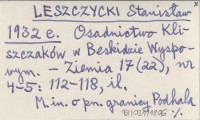 LESZCZYCKI Stanisław
1932 e. Osadnictwo Kli-
szczaków w Beskidzie Wyspo-
wym. – Ziemia 17(22), nr
4-5: 112-118, il.
M. in. o pn. granicy Podhala